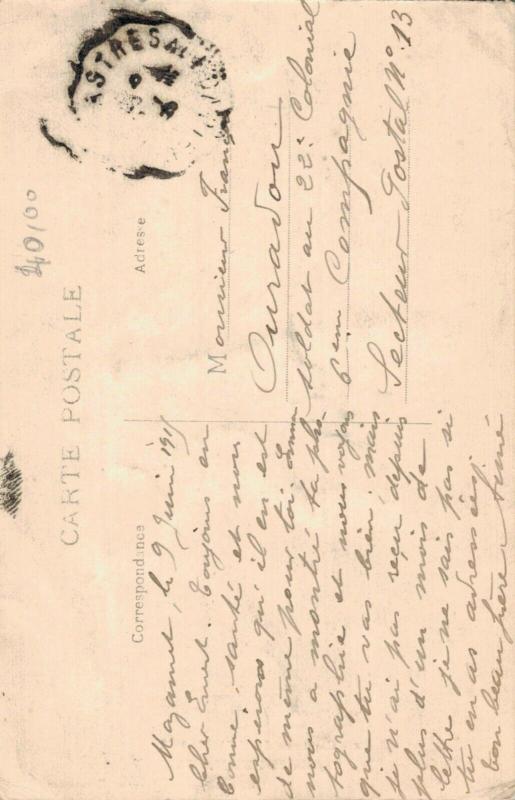 CARTE POSTALE
Correspondance
Mazamet, le 9 Juin 1915
Cher Toujours en
bonne santé et nous
espérons qu'il en est
de même pour toi.
nous a montré ta pho-
tographie et nous voyons
que tu vas bien. mais
je n'ai pas reçu depuis
plus d'un mois de
lettre je ne sais pas si
tu en as adressées.
ton beau frère Aimé
Adresse
Monsieur
Ouradou
soldat au 22e Colonial
6em Compagnie
Secteur Postal No 13
40/00